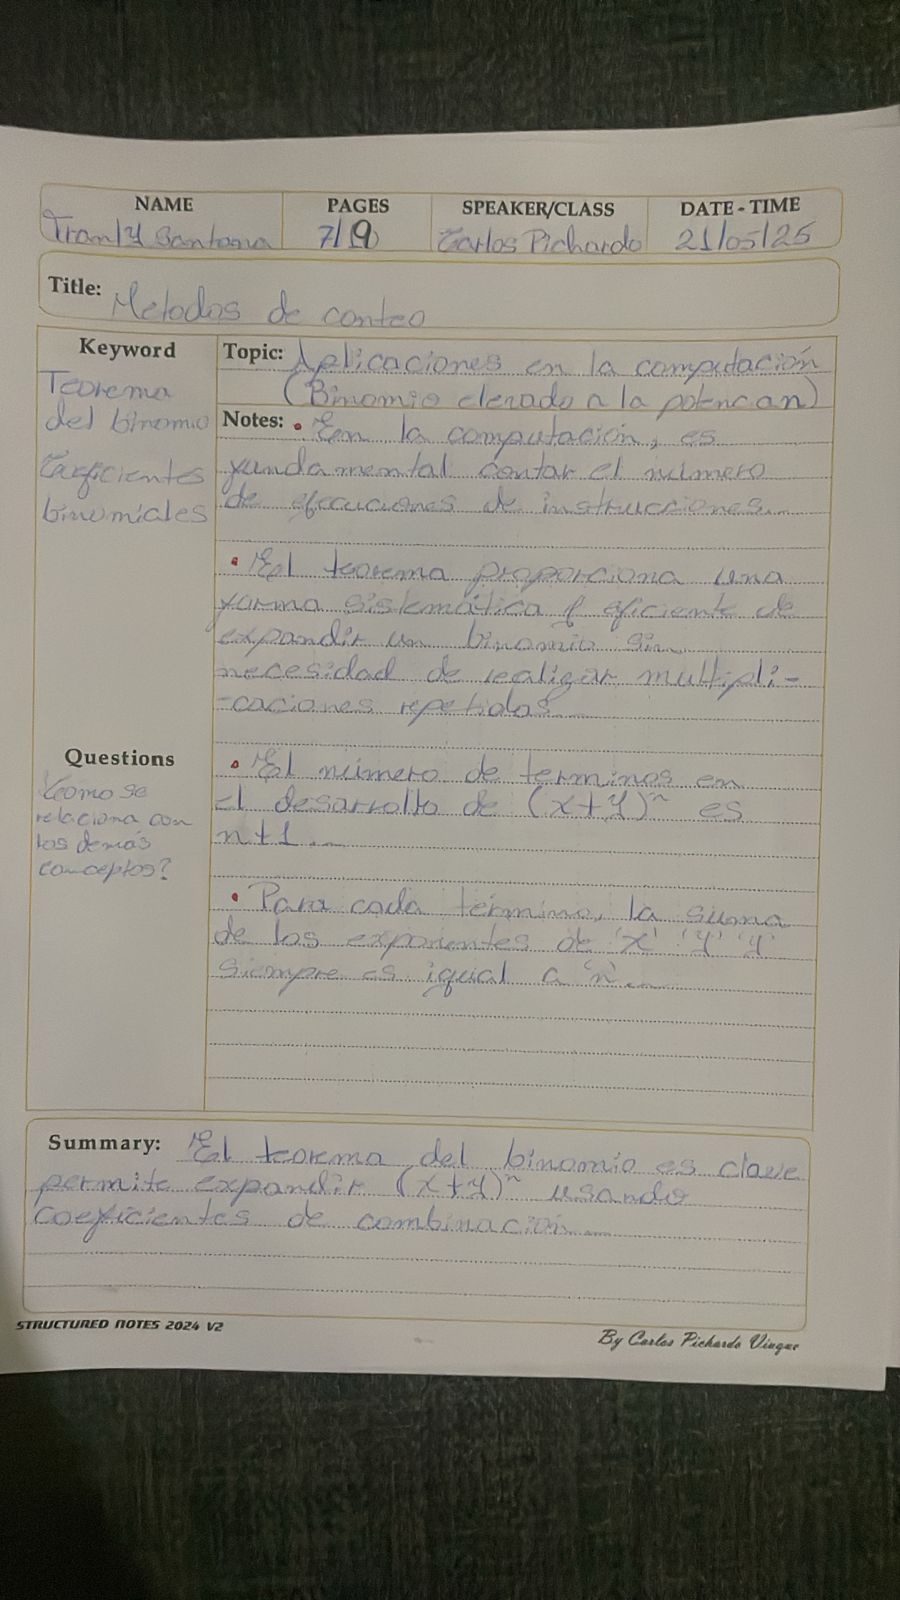 NAME PAGES SPEAKER/CLASS DATE - TIME
Santana 7/19 Carlos Pichardo 21/05/25
Title: Metodos de conteo
Keyword
Teorema
del binomio
Coeficientes
binomiales
Topic: Aplicaciones en la computación
(Binomio elevado a la potencia n)
Notes: • En la computación, es
fundamental contar el número
de ejecuciones de instrucciones.
• El teorema proporciona una
forma sistemática y eficiente de
expandir un binomio sin
necesidad de realizar multipli-
-caciones repetidas
• El número de terminos en
el desarrollo de (x+y)ⁿ es
n+1.
• Para cada término, la suma
de los exponentes de 'x' 'y' 'y'
siempre es igual a 'n'.
Questions
¿Como se
relaciona con
los demás
conceptos?
Summary: El teorema del binomio es clave
permite expandir (x+y)ⁿ usando
coeficientes de combinación
STRUCTURED NOTES 2024 V2
By Carlos Pichardo Viuque